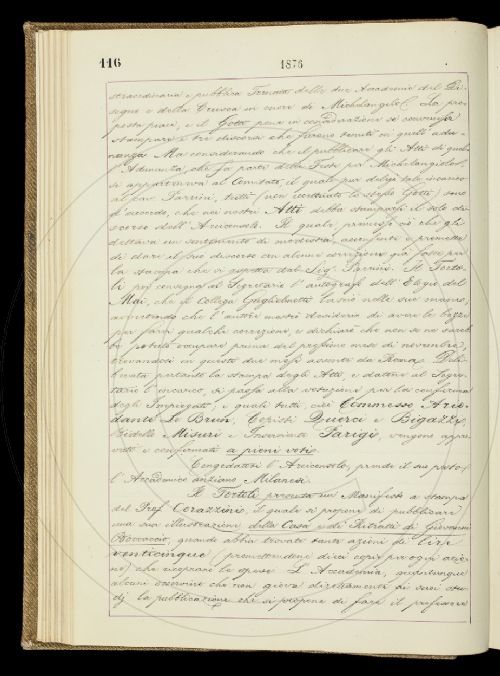 116
1876
straordinaria e pubblica Tornata delle due Accademie del Di-
segno e della Crusca in onore di Michelangelo. La pro-
posta piace, e il Gotti pone in considerazione se convenga
stampare i tre discorsi che furono tenuti in quell'adu-
nanza. Ma considerando che il pubblicare gli Atti di quel-
l'Adunanza, che fa parte delle Feste per Michelangelo,
si apparteneva al Comitato, il quale pur delegò tale incarico
al cav. Parrini, tutti (non eccettuato lo stesso Gotti) sono
d'accordo, che nei nostri Atti debba stamparsi il solo di-
scorso dell'Arciconsolo. Il quale, premesso ciò che gli
dettava un sentimento di modestia, acconsente e promette
di dare il suo discorso con alcune correzioni già fatte per
la stampa che si aspetta dal Sig. Parrini. Il Torto-
li poi consegna al Segretario l'autografo dell'Elogio del
Mai, che il Collega Guglielmotti lasciò nelle sue mani,
avvertendo che l'autore mostrò desiderio di avere le bozze
per farvi qualche correzione, e dichiarò che non se ne sareb-
be potuto occupare prima del prossimo mese di novembre,
trovandosi in questi due mesi assente da Roma. Deli-
berata pertanto la stampa degli Atti, e datone al Segre-
tario l'incarico, si passa alla votazione per la conferma
degli Impiegati; e questi tutti, cioè Commesso Arci-
danti Le Brun, Copisti Querci e Bigazzi,
Bidello Misuri e Inserviente Parigi, vengono appro-
vati e confermati a pieni voti.
Congedatosi l'Arciconsolo, prende il suo posto
l'Accademico anziano Milanesi.
Il Tortoli presenta un Manifesto a stampa
del Prof. Corazzini, il quale si propone di pubblicare
una sua illustrazione della Casa e dei Ritratti di Giovanni
Boccaccio, quando abbia trovate tante azioni di lire
venticinque (promettendone dieci copie per ogni azio-
ne) che ricoprano le spese. L'Accademia, quantunque
alcuni osservino che non giova direttamente ai suoi stu-
dj la pubblicazione che si propone di fare il professore